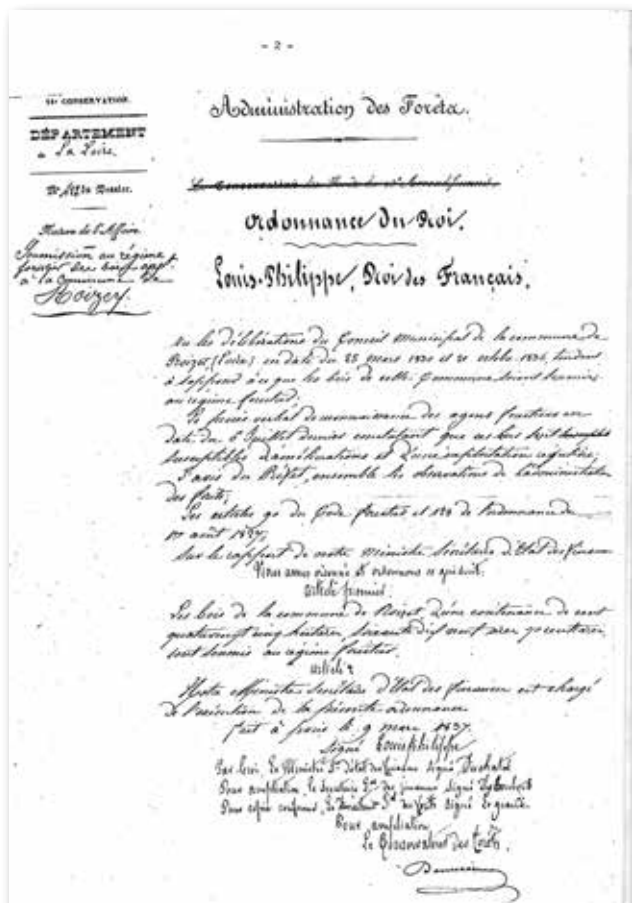 - 2 -
CONSERVATION.
DÉPARTEMENT
La Loire.
Dossier.
Nature de l'Affaire
Soumission au régime
forestier des bois app.
à la Commune de
Roizey
Administration des Forêts.
Ordonnance du Roi.
Louis-Philippe, Roi des Français.
Vu les délibérations du Conseil Municipal de la commune de
Roizet (Loire) en date du 25 mars et 21 octobre tendant
à ce que les bois de cette Commune soient soumis
au régime forestier;
Le procès verbal de reconnaissance des agens forestiers en
date du 6 Juillet dernier constatant que ces bois sont
susceptibles d'améliorations et d'une exploitation régulière;
L'avis du Préfet, ensemble les observations de l'administration
des forêts;
Les articles 90 du Code forestier et 128 de l'ordonnance du
1er août 1827;
Sur le rapport de notre Ministre Secrétaire d'Etat des finances
Nous avons ordonné et ordonnons ce qui suit.
article premier.
Les bois de la commune de Roizet d'une contenance de cent
quatrevingt cinq hectares, soixante dix neuf ares centiares
sont soumis au régime forestier.
article 2
Notre Ministre Secrétaire d'Etat des finances est chargé
de l'exécution de la présente ordonnance
fait à paris le 9 mars 1837.
Signé Louis philippe
Par le roi, Le Ministre Sre d'état des finances signé Duchatel
Pour ampliation, le Secrétaire des finances signé
Pour copie conforme, le des forêts signé
Pour ampliation
Le Conservateur des forêts,